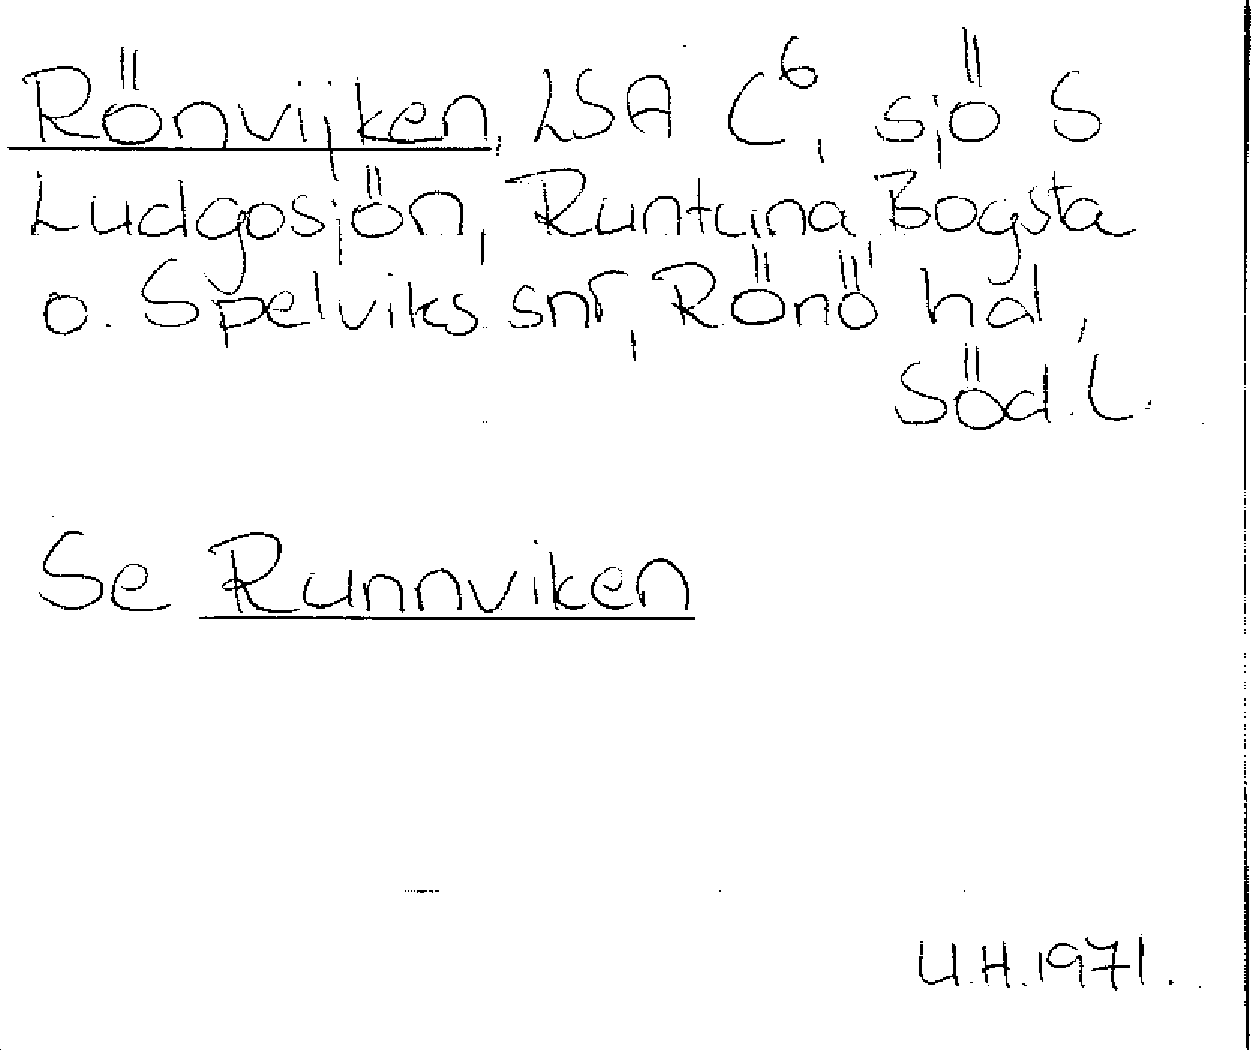 Rönvijken, LSA C⁶, sjö S
Ludgosjön, Runtuna, Bogsta
o. Spelviks snr, Rönö hd,
Söd. L.
Se Runnviken
U.H. 1971.